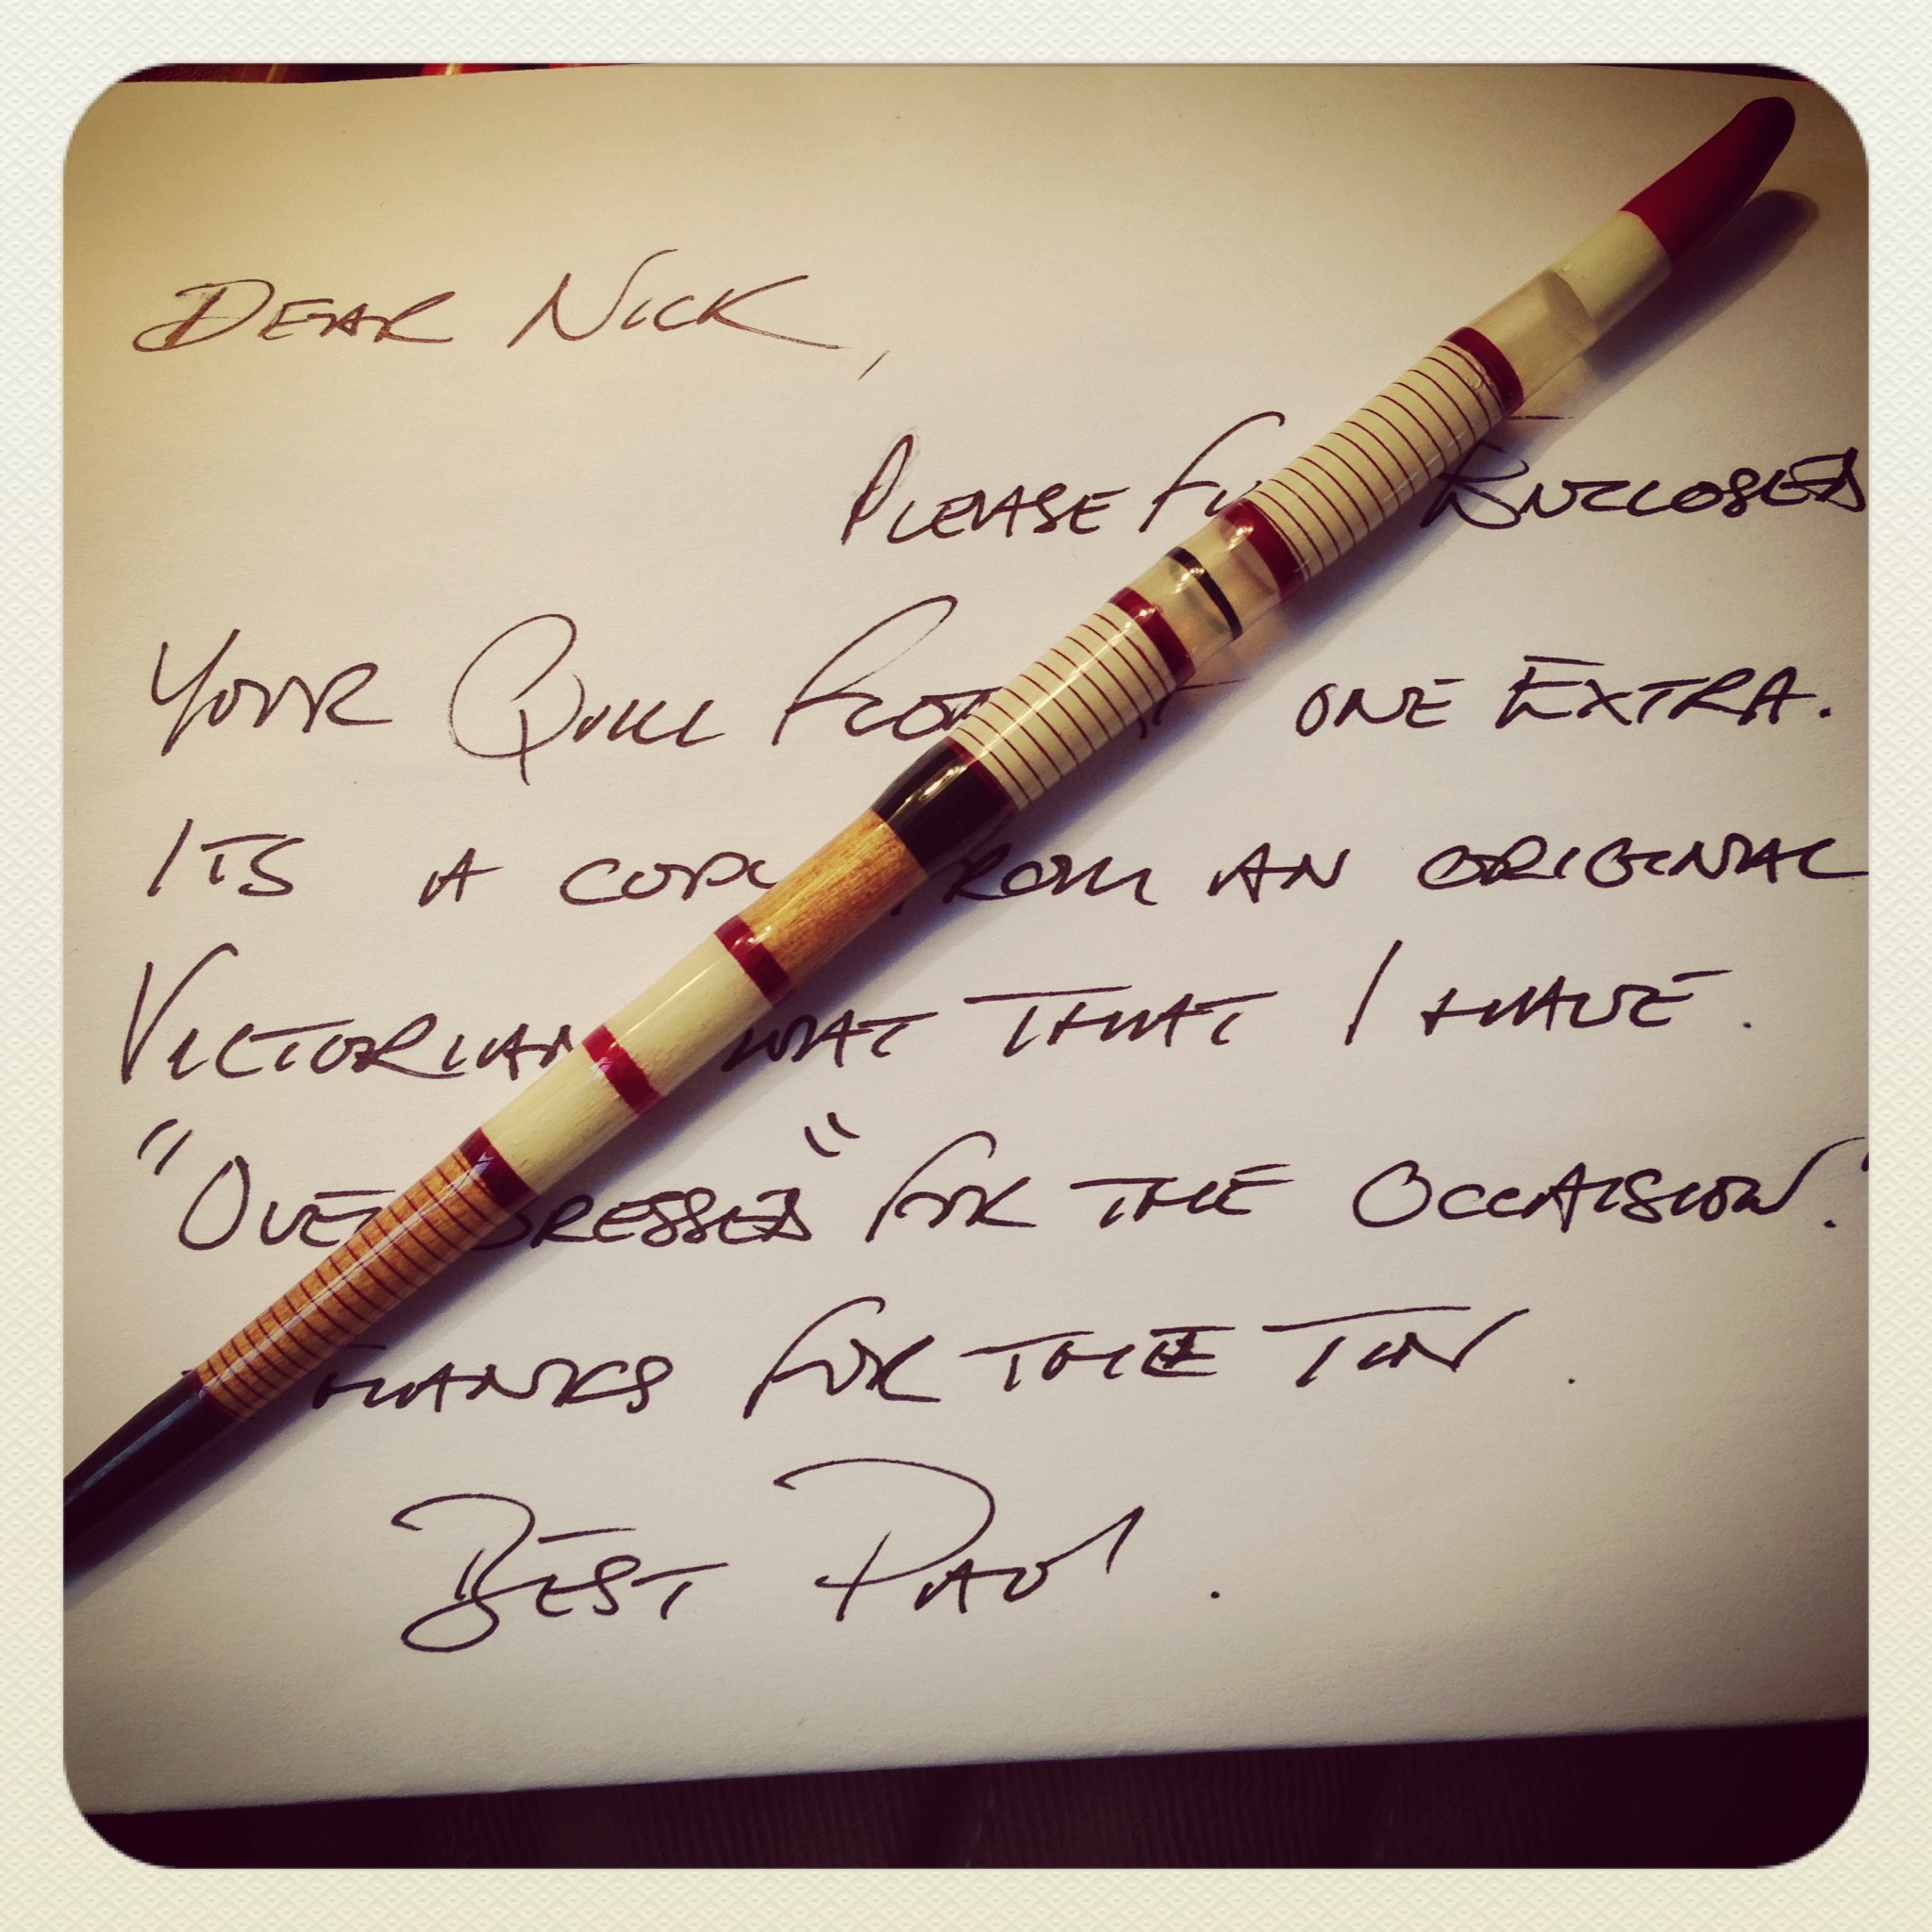 DEAR NICK,
PLEASE FI ENCLOSED
YOUR QUILL FLOAT ONE EXTRA.
ITS A COPY FROM AN ORIGINAL
VICTORIAN THAT I HAVE.
"OVERDRESSED" FOR THE OCCAISION.
THANKS FOR THE TIN.
BEST PAUL.